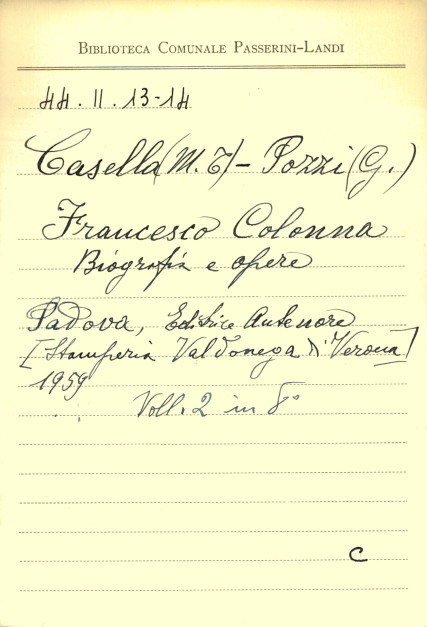 BIBLIOTECA COMUNALE PASSERINI-LANDI
44.II.13-14
Casella (M. T) - Pozzi (G.)
Francesco Colonna
Biografia e opere
Padova, Editrice Antenore
[Stamperia Valdonega di Verona]
1959
Voll. 2 in 8°
C